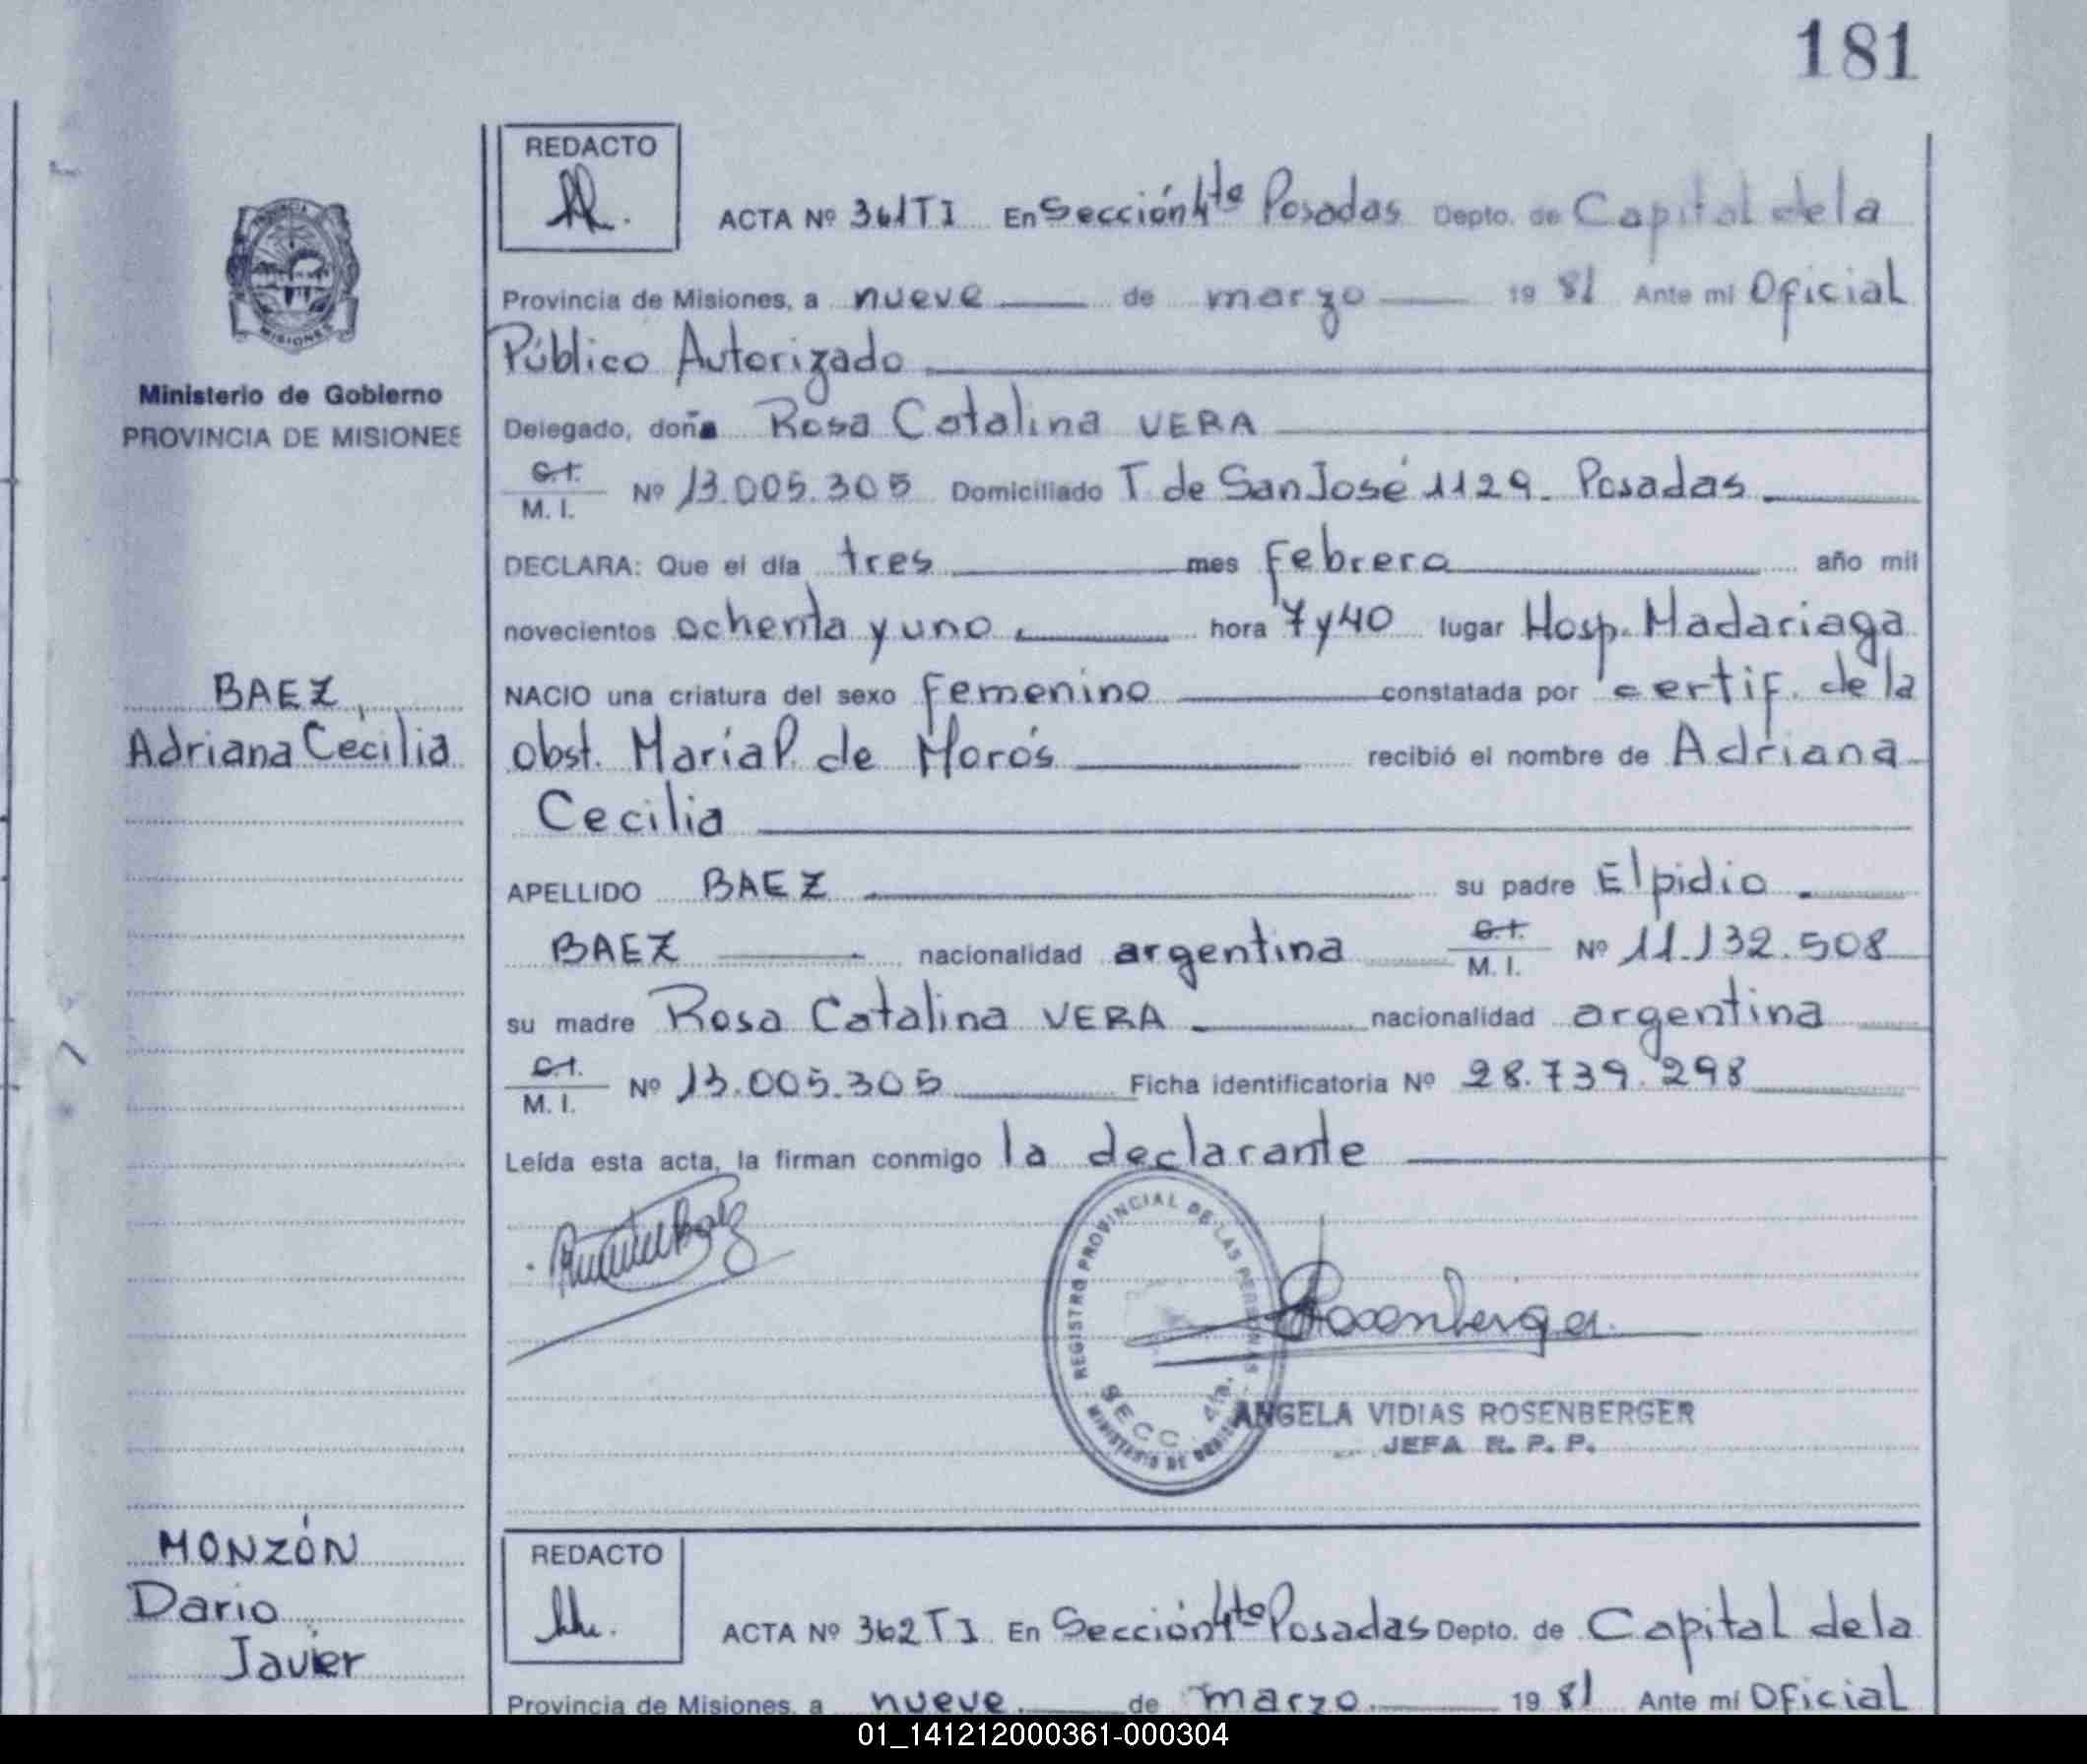 181
REDACTO
ACTA Nº 361 T I En Sección 4ta Posadas Depto. de Capital de la
Provincia de Misiones, a nueve de marzo 19 81 Ante mi Oficial
Público Autorizado
Ministerio de Gobierno
PROVINCIA DE MISIONES
Delegado, doña Rosa Catalina VERA
C.I.
M. I. Nº 13.005.305 Domiciliado T. de San José 1129. Posadas
DECLARA: Que el día tres mes febrero año mil
novecientos ochenta y uno hora 7 y 40 lugar Hosp. Madariaga
BAEZ,
Adriana Cecilia
NACIO una criatura del sexo femenino constatada por certif. de la
obst. María P. de Morós recibió el nombre de Adriana
Cecilia
APELLIDO BAEZ su padre Elpidio
BAEZ nacionalidad argentina C.I. M. I. Nº 11.132.508
su madre Rosa Catalina VERA nacionalidad argentina
C.I.
M. I. Nº 13.005.305 Ficha identificatoria Nº 28.739.298
Leída esta acta, la firman conmigo la declarante
REGISTRO PROVINCIAL DE LAS PERSONAS
SECC. 4ta.
MINISTERIO DE GOBIERNO
Rosenberger
ANGELA VIDIAS ROSENBERGER
JEFA R. P. P.
MONZÓN
Dario
Javier
REDACTO
ACTA Nº 362 T I En Sección 4ta Posadas Depto. de Capital de la
Provincia de Misiones, a nueve de marzo 19 81 Ante mi Oficial
01_141212000361-000304